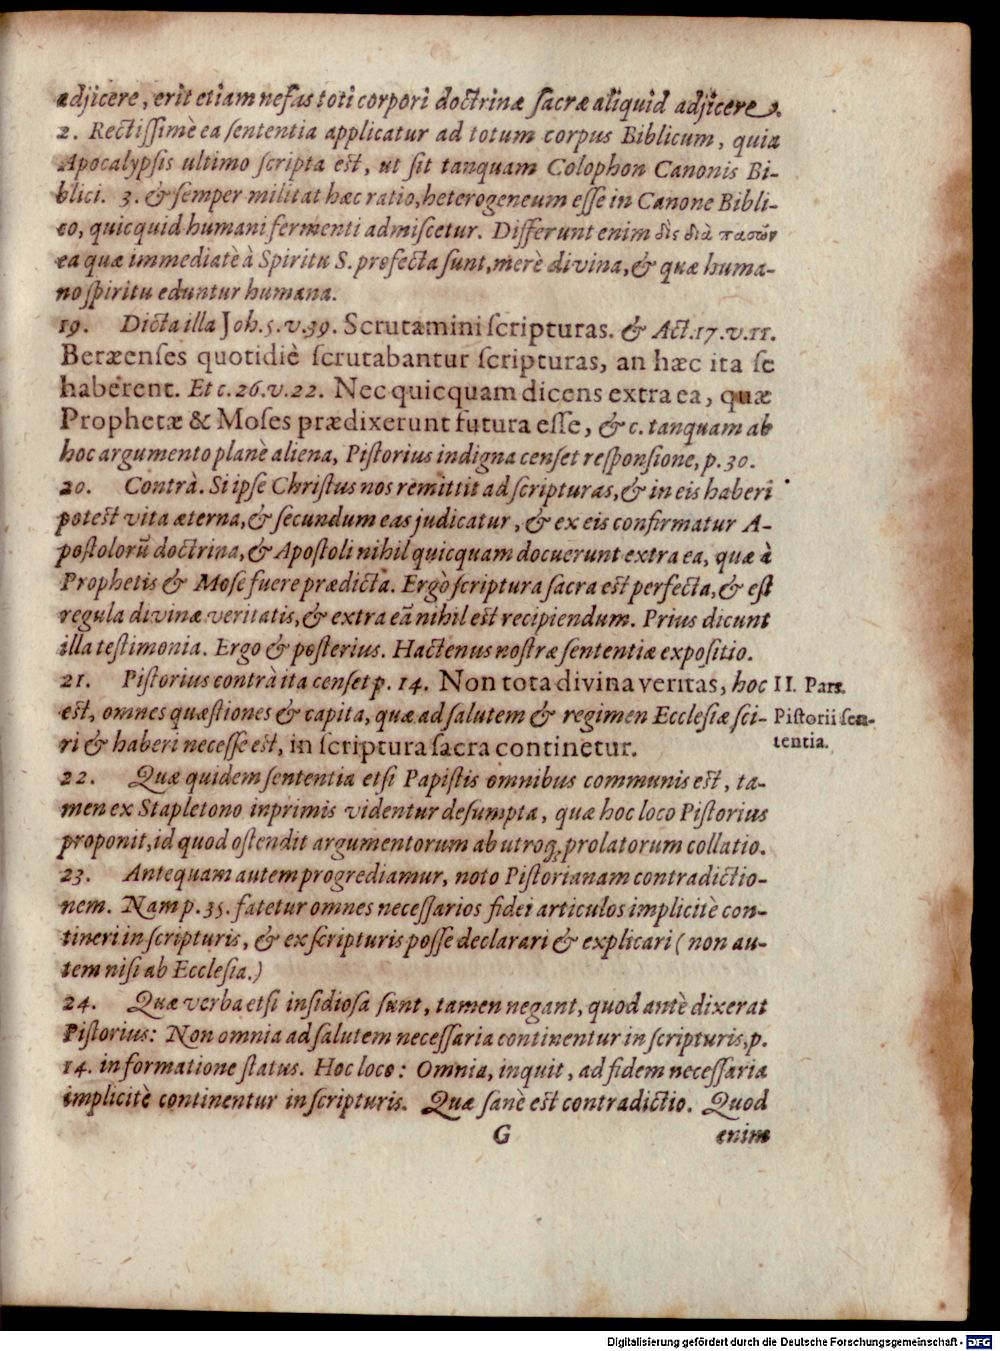 adjicere, erit etiam nefas toti corpori doctrinæ sacræ aliquid adjicere.
2. Rectissimè ea sententia applicatur ad totum corpus Biblicum, quia
Apocalypsis ultimo scripta est, ut sit tanquam Colophon Canonis Bi-
blici. 3. & semper militat hæc ratio, heterogeneum esse in Canone Bibli-
co, quicquid humani fermenti admiscetur. Differunt enim δὶς διὰ πασῶν
ea quæ immediatè à Spiritu S. profecta sunt, merè divina, & quæ huma-
no spiritu eduntur humana.
19. Dicta illa Joh. 5. v. 39. Scrutamini scripturas. & Act. 17. v. 11.
Beræenses quotidiè scrutabantur scripturas, an hæc ita se
haberent. Et c. 26. v. 22. Nec quicquam dicens extra ea, quæ
Prophetæ & Moses prædixerunt futura esse, & c. tanquam ab
hoc argumento planè aliena, Pistorius indigna censet responsione, p. 30.
20. Contrà. Si ipse Christus nos remittit ad scripturas, & in eis haberi
potest vita æterna, & secundum eas judicatur, & ex eis confirmatur A-
postolorū doctrina, & Apostoli nihil quicquam docuerunt extra ea, quæ à
Prophetis & Mose fuere prædicta. Ergò scriptura sacra est perfecta, & est
regula divinæ veritatis, & extra eā nihil est recipiendum. Prius dicunt
illa testimonia. Ergo & posterius. Hactenus nostræ sententiæ expositio.
21. Pistorius contrà ita censet p. 14. Non tota divina veritas, hoc
est, omnes quæstiones & capita, quæ ad salutem & regimen Ecclesiæ sci-
ri & haberi necesse est, in scriptura sacra continetur.
II. Pars.
Pistorii sen-
tentia.
22. Quæ quidem sententia etsi Papistis omnibus communis est, ta-
men ex Stapletono inprimis videntur desumpta, quæ hoc loco Pistorius
proponit, id quod ostendit argumentorum ab utroq; prolatorum collatio.
23. Antequam autem progrediamur, noto Pistorianam contradictio-
nem. Nam p. 35. fatetur omnes necessarios fidei articulos implicitè con-
tineri in scripturis, & ex scripturis posse declarari & explicari (non au-
tem nisi ab Ecclesia.)
24. Quæ verba etsi insidiosa sunt, tamen negant, quod antè dixerat
Pistorius: Non omnia ad salutem necessaria continentur in scripturis, p.
14. informatione status. Hoc loco: Omnia, inquit, ad fidem necessaria
implicitè continentur in scripturis. Quæ sanè est contradictio. Quod
G enim
Digitalisierung gefördert durch die Deutsche Forschungsgemeinschaft - DFG